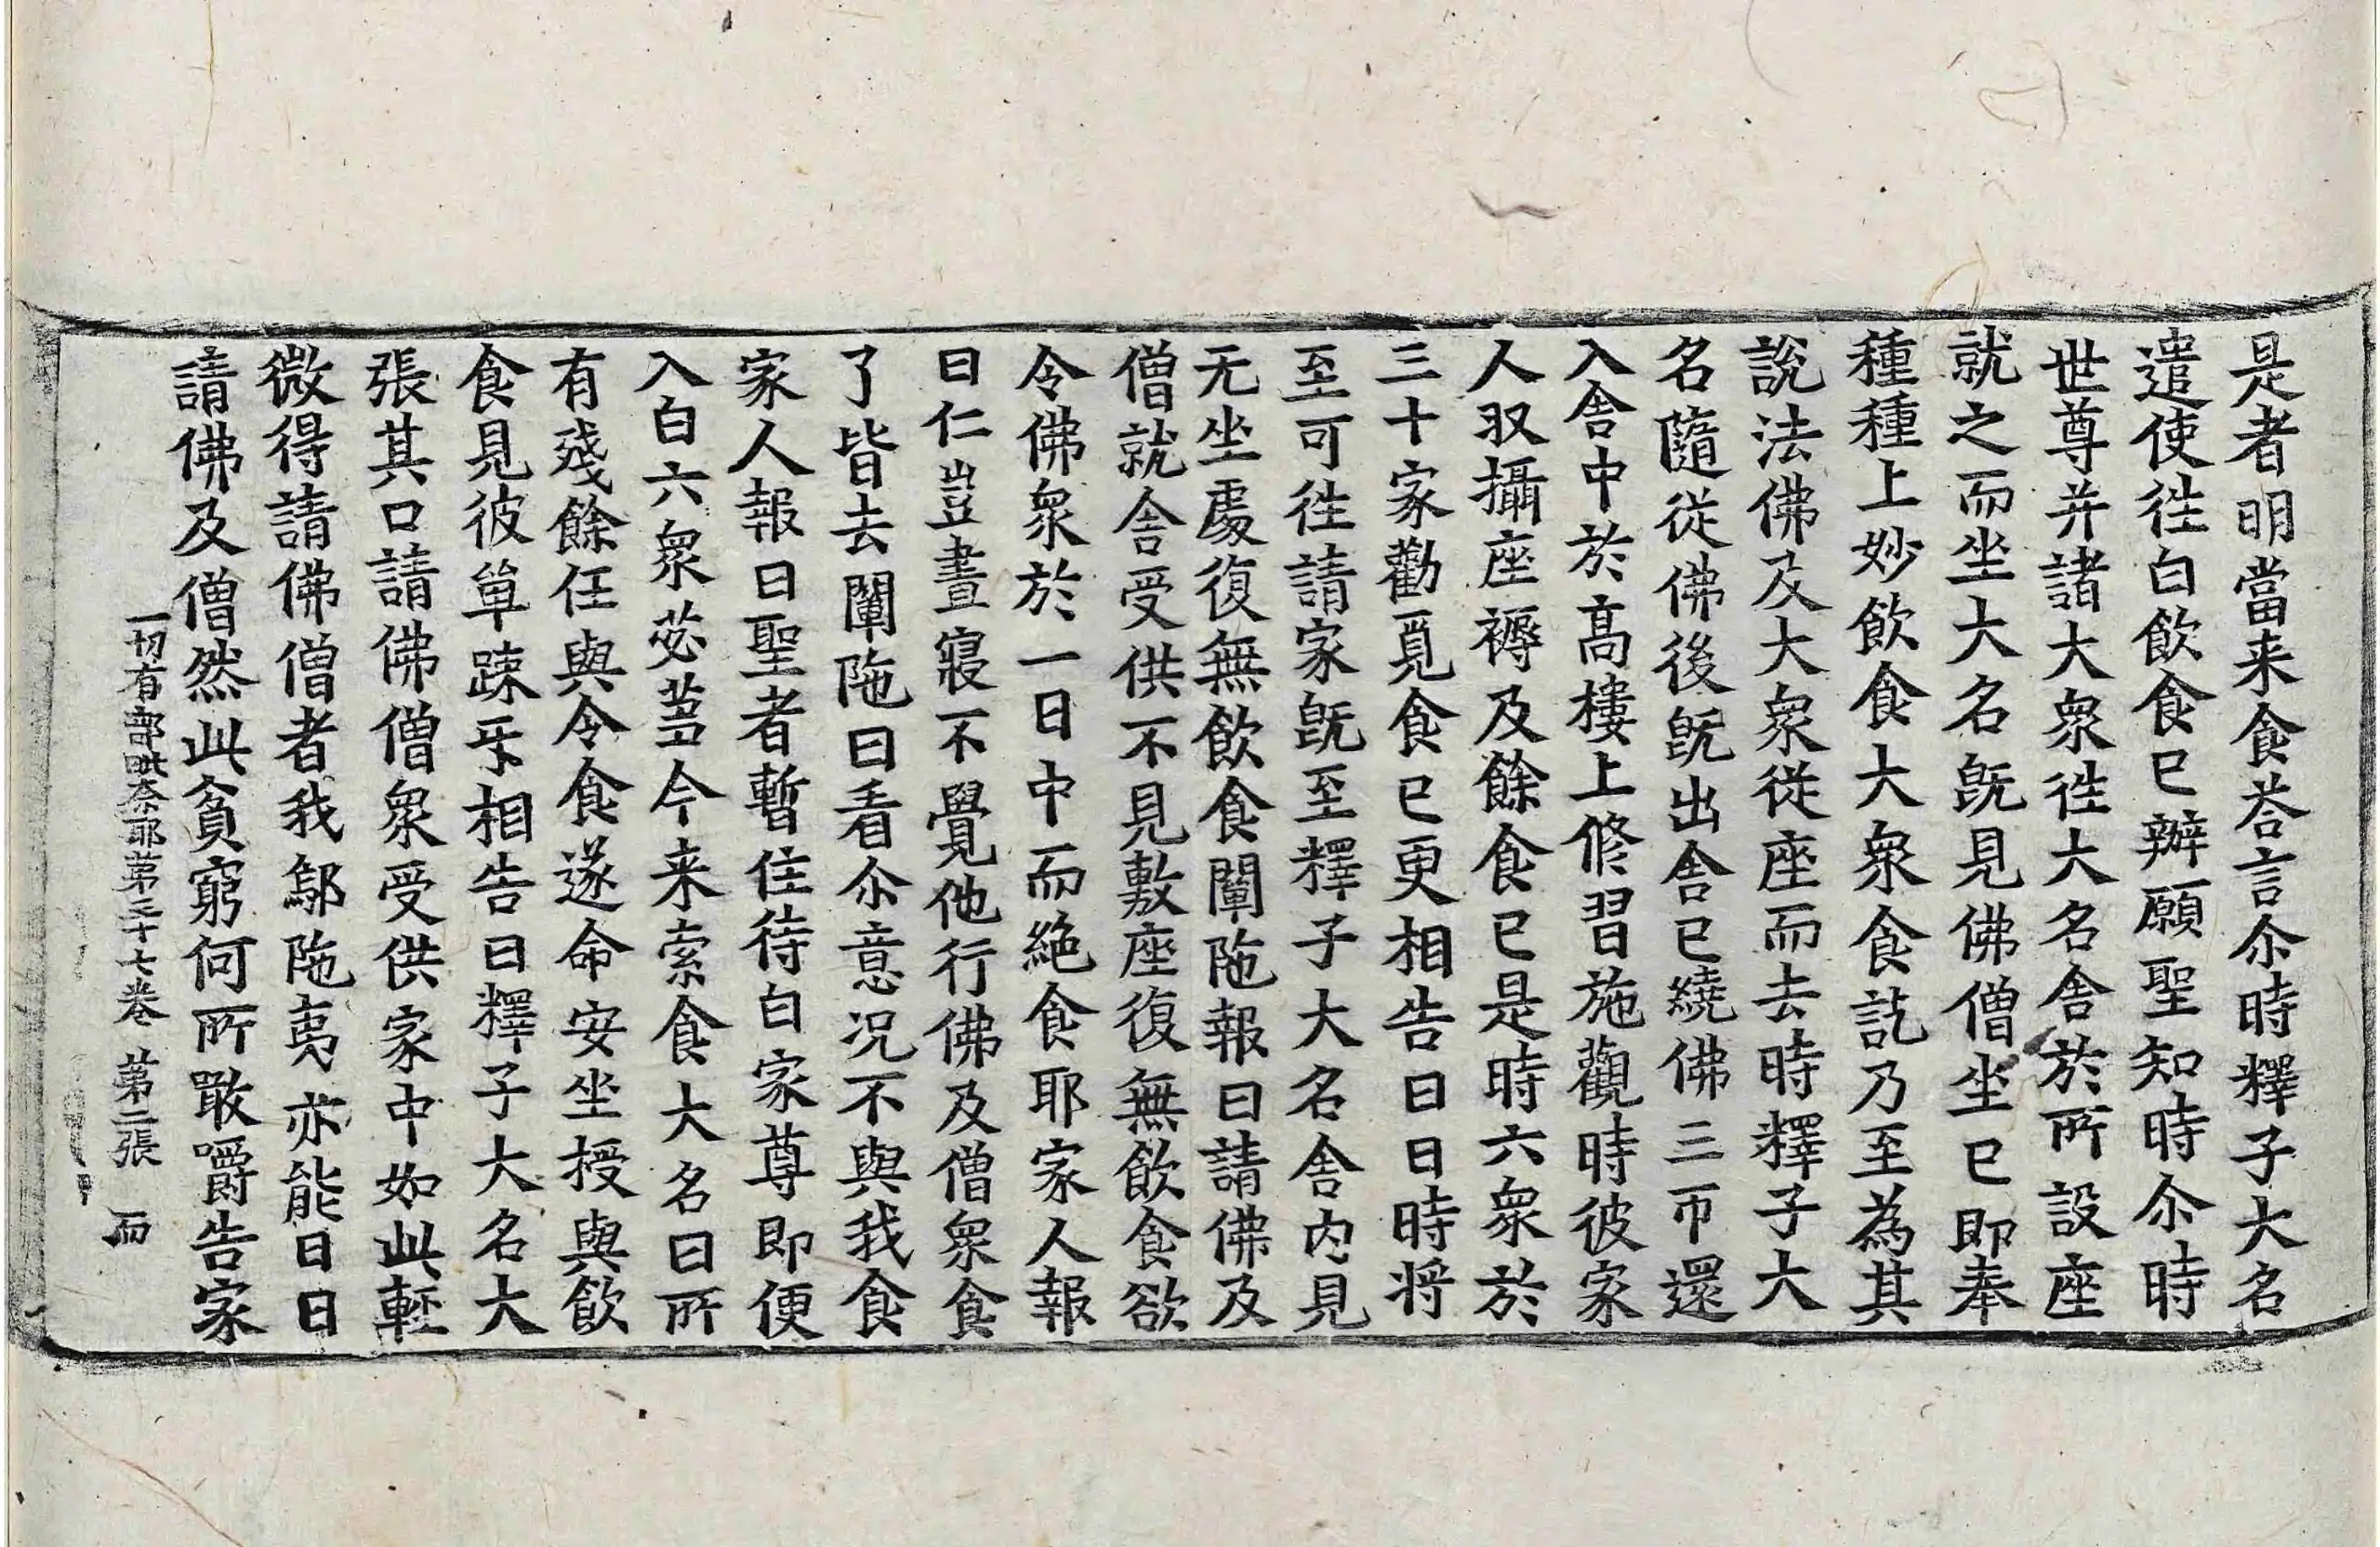 是者明當来食荅言尒時釋子大名
遣使徃白飲食已辦願聖知時尒時
世尊并諸大衆徃大名舍於所設座
就之而坐大名旣見佛僧坐已即奉
種種上妙飲食大衆食訖乃至為其
說法佛及大衆従座而去時釋子大
名隨従佛後旣出舍已繞佛三帀還
入舍中於髙樓上修習施觀時彼家
人収攝座褥及餘食已是時六衆於
三十家勸覓食已更相告曰日時将
至可徃請家旣至釋子大名舍内見
无坐處復無飲食闡陁報曰請佛及
僧就舍受供不見敷座復無飲食欲
令佛衆於一日中而絶食耶家人報
曰仁豈晝寢不覺他行佛及僧衆食
了皆去闡陁曰看尒意况不與我食
家人報曰聖者暫住待白家尊即便
入白六衆苾蒭今来索食大名曰所
有殘餘任與令食遂命安坐授與飲
食見彼單踈㸦相告曰釋子大名大
張其口請佛僧衆受供家中如此輕
微得請佛僧者我鄔陁夷亦能日日
請佛及僧然此貧窮何所敢嚼告家
一切有部毗奈耶第三十七卷 第二張 而